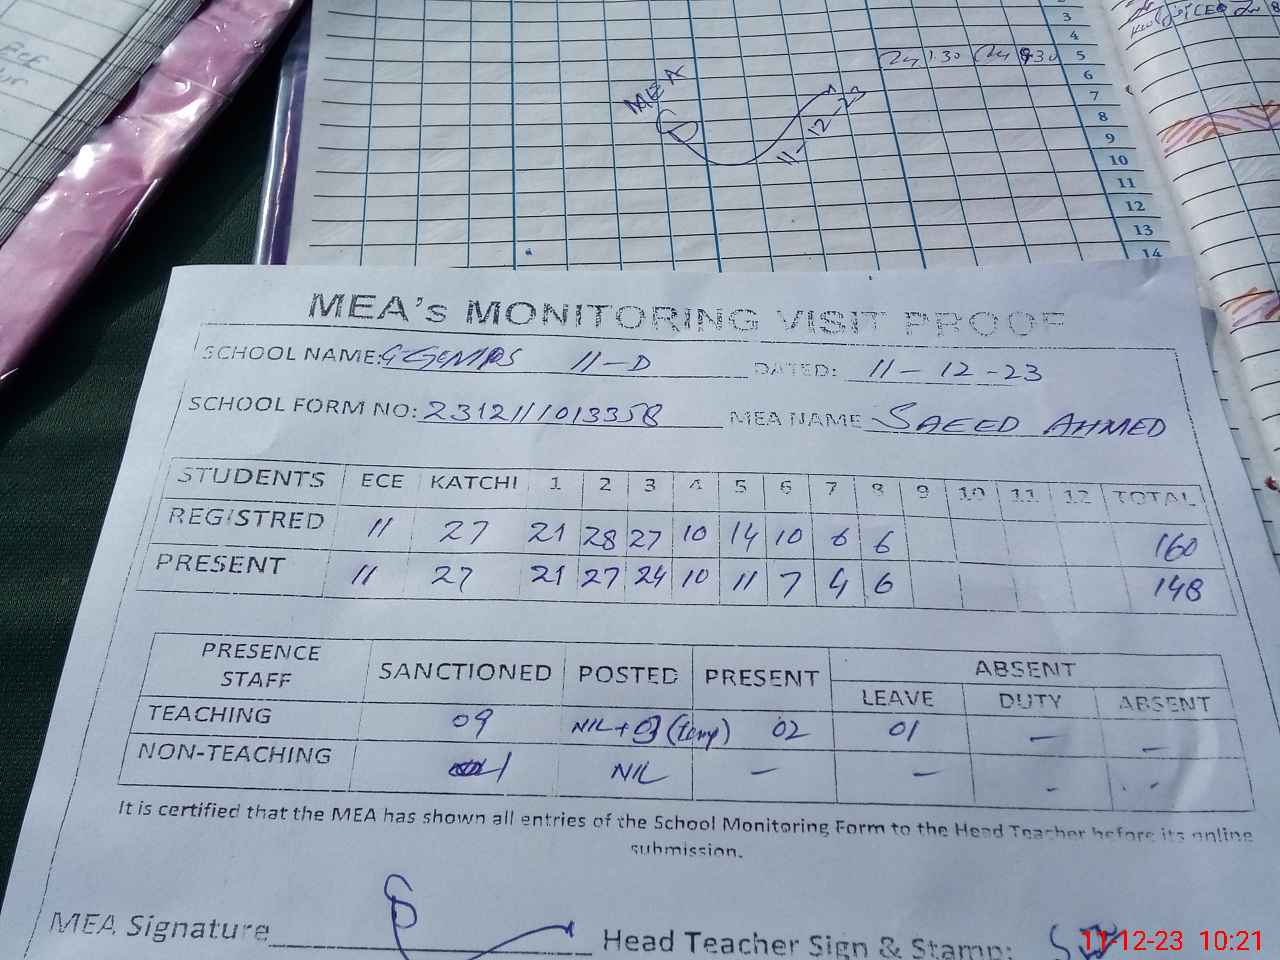 3
4
5
6
7
8
9
10
11
12
13
14
MEA
11-12-23
MEA's MONITORING VISIT PROOF
SCHOOL NAME: GGEMPS 11-D DATED: 11-12-23
SCHOOL FORM NO: 2312111013358 MEA NAME SAEED AHMED
STUDENTS ECE KATCHI 1 2 3 4 5 6 7 8 9 10 11 12 TOTAL
REGISTRED 11 27 21 28 27 10 14 10 6 6 160
PRESENT 11 27 21 27 24 10 11 7 4 6 148
PRESENCE STAFF SANCTIONED POSTED PRESENT ABSENT
LEAVE DUTY ABSENT
TEACHING 09 NIL + 03 (temp) 02 01 — —
NON-TEACHING 1 NIL — — - -
It is certified that the MEA has shown all entries of the School Monitoring Form to the Head Teacher before its online
submission.
MEA Signature Head Teacher Sign & Stamp:
11-12-23 10:21